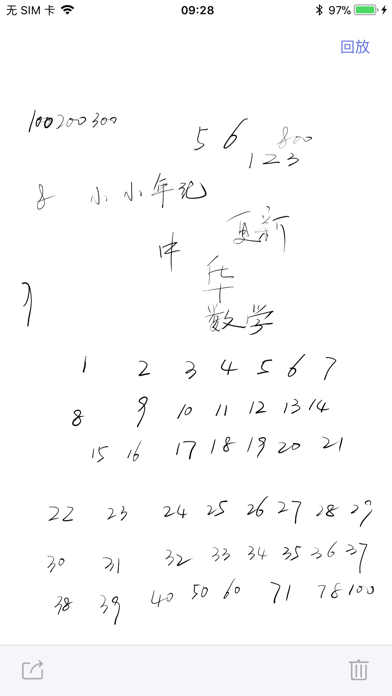 无 SIM 卡 09:28 97%
回放
100200300
5 6 800
1 2 3
8 小小年纪
更新
中
华
数学
1 2 3 4 5 6 7
8 9 10 11 12 13 14
15 16 17 18 19 20 21
22 23 24 25 26 27 28 29
30 31 32 33 34 35 36 37
38 39 40 50 60 71 78 100